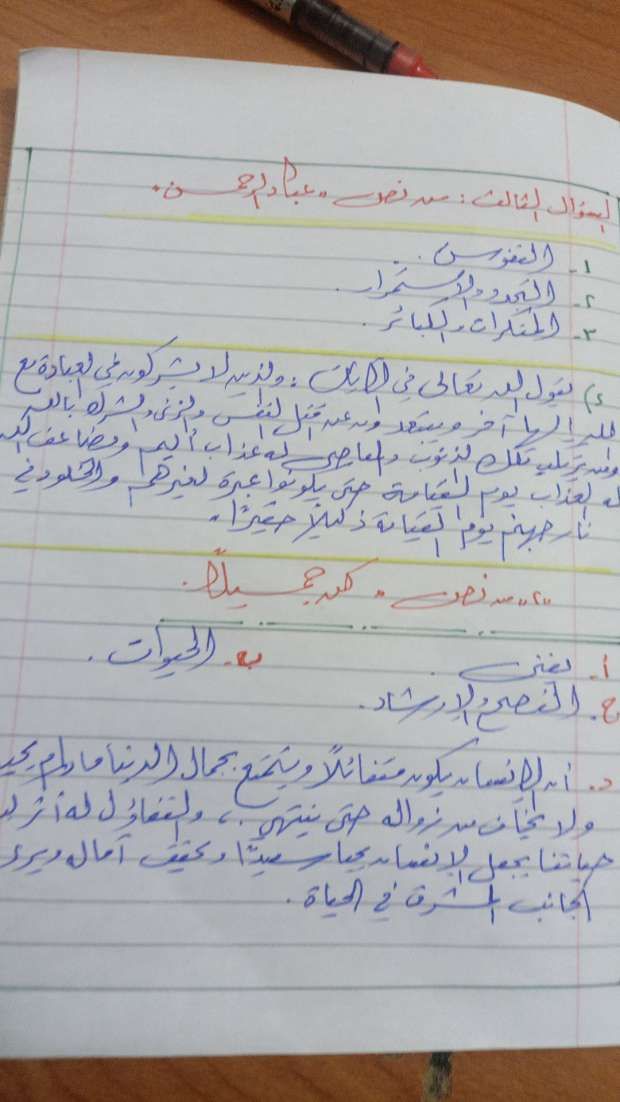 السؤال الثالث: من نص "عباد الرحمن"
١- النفوس.
٢- التجدد والاستمرار.
٣- المنكرات والكبائر.
٤) يقول الله تعالى في الآيات: والذين لا يشركون في العبادة مع
الله إلهاً آخر ويبتعدون عن قتل النفس والزنى والشرك بالله
ومن يرتكب تلك الذنوب والمعاصي له عذاب أليم ويضاعف الله
له العذاب يوم القيامة حتى يكونوا عبرة لغيرهم والخلود في
نار جهنم يوم القيامة ذليلاً حقيراً.
"٢" من نص "كن جميلاً"
أ. يفنى. ب. الحيوات.
ج. النصح والإرشاد.
د. أن الإنسان يكون متفائلاً ويتمتع بجمال الدنيا مادام يحيا
ولا يخاف من زواله حتى ينتهي، والتفاؤل له أثر
حياتنا يجعل الإنسان يحيا سعيدًا ويحقق آماله ويرى
الجانب المشرق في الحياة.